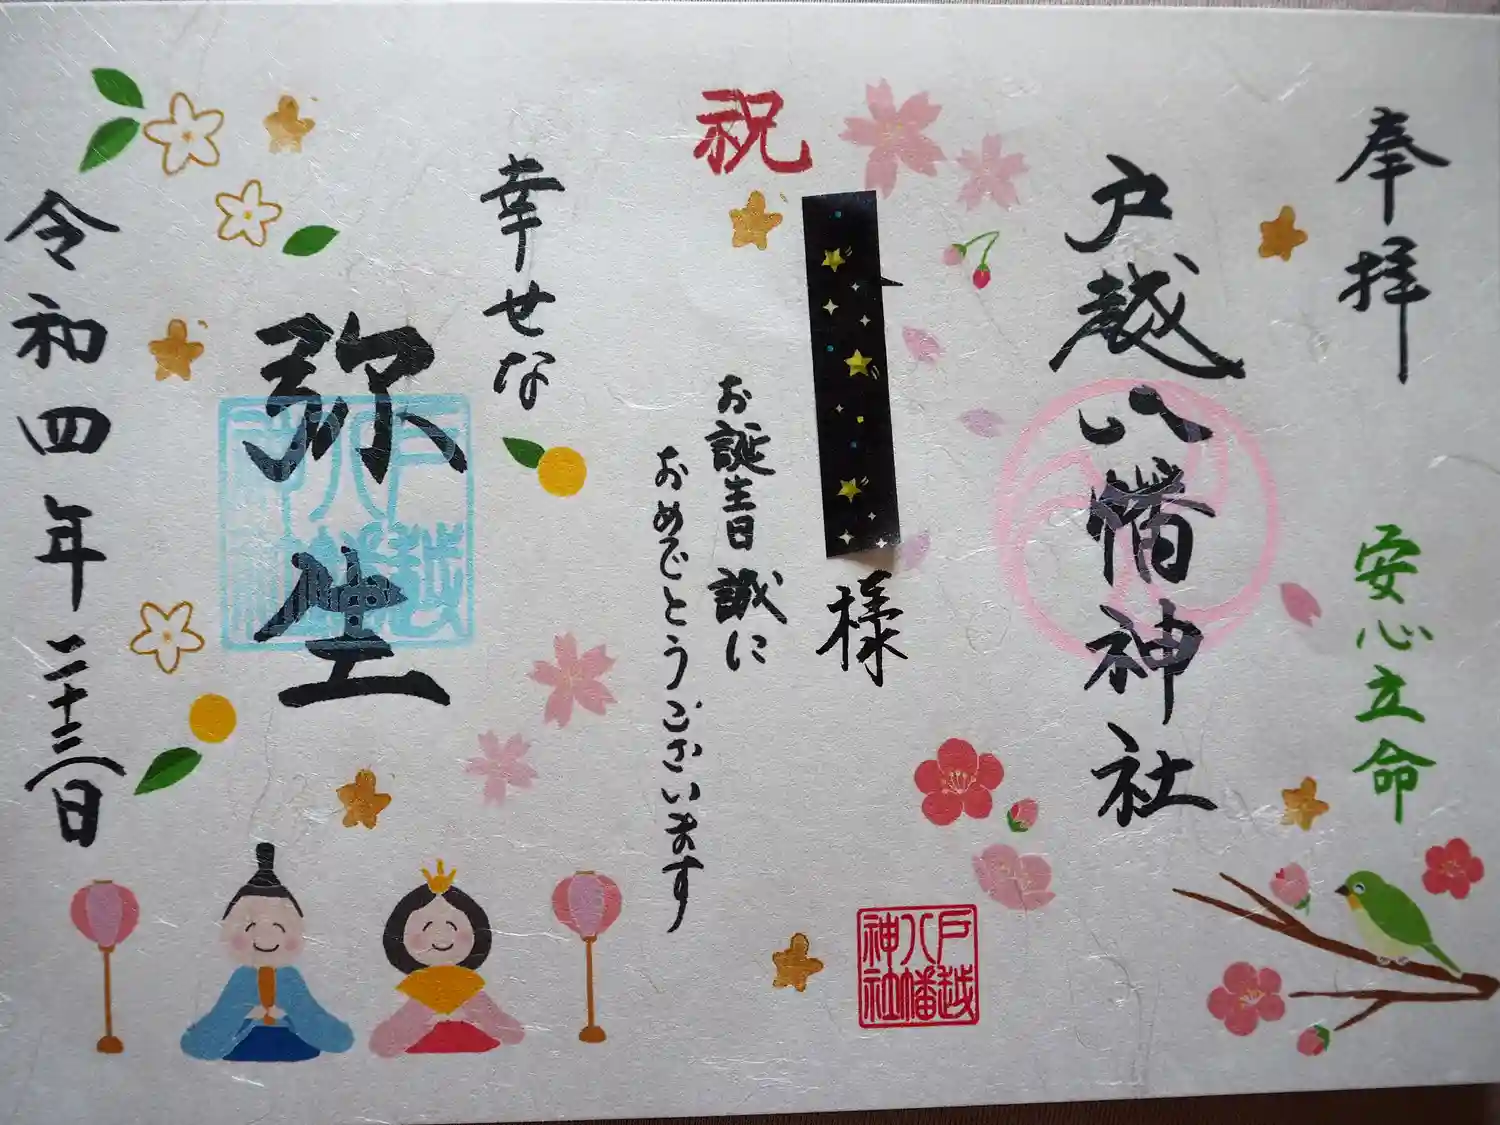 奉拝
安心立命
戸越八幡神社
祝
様
お誕生日誠に
おめでとうございます
戸越八幡神社
幸せな
弥生
戸越八幡神社
令和四年二十三日